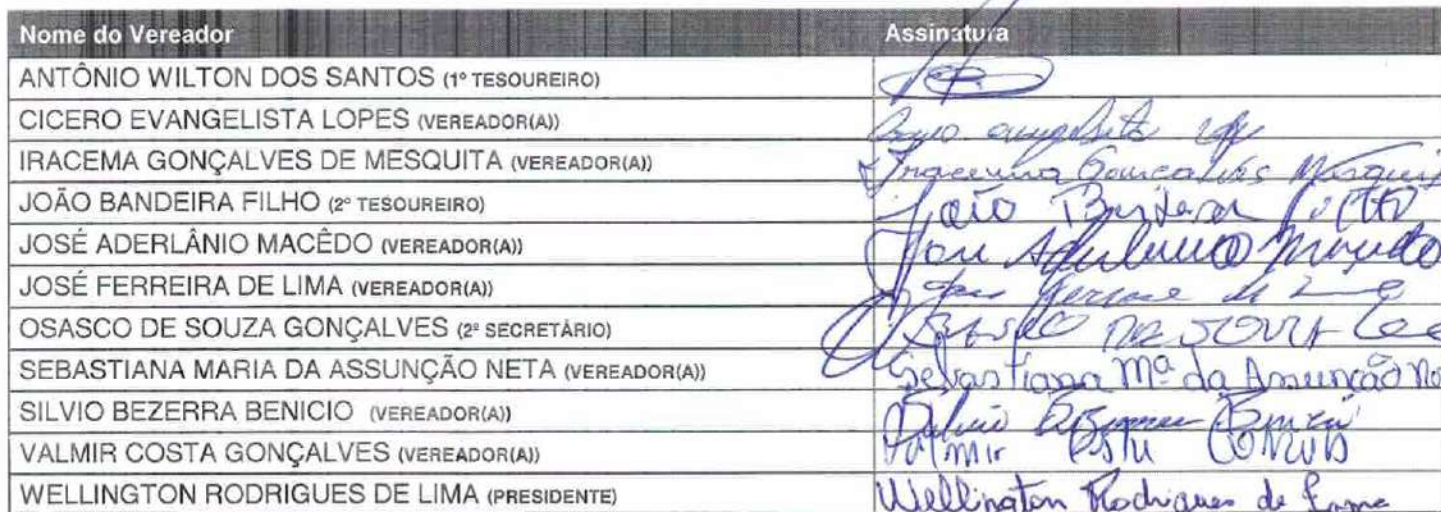 Nome do Vereador Assinatura
ANTÔNIO WILTON DOS SANTOS (1º TESOUREIRO)
CICERO EVANGELISTA LOPES (VEREADOR(A))
IRACEMA GONÇALVES DE MESQUITA (VEREADOR(A)) Iracema Gonçalves
JOÃO BANDEIRA FILHO (2º TESOUREIRO) João
JOSÉ ADERLÂNIO MACÊDO (VEREADOR(A))
JOSÉ FERREIRA DE LIMA (VEREADOR(A))
OSASCO DE SOUZA GONÇALVES (2º SECRETÁRIO)
SEBASTIANA MARIA DA ASSUNÇÃO NETA (VEREADOR(A)) Sebastiana Mª da Assunção
SILVIO BEZERRA BENICIO (VEREADOR(A))
VALMIR COSTA GONÇALVES (VEREADOR(A)) Valmir
WELLINGTON RODRIGUES DE LIMA (PRESIDENTE) Wellington Rodrigues de Lima